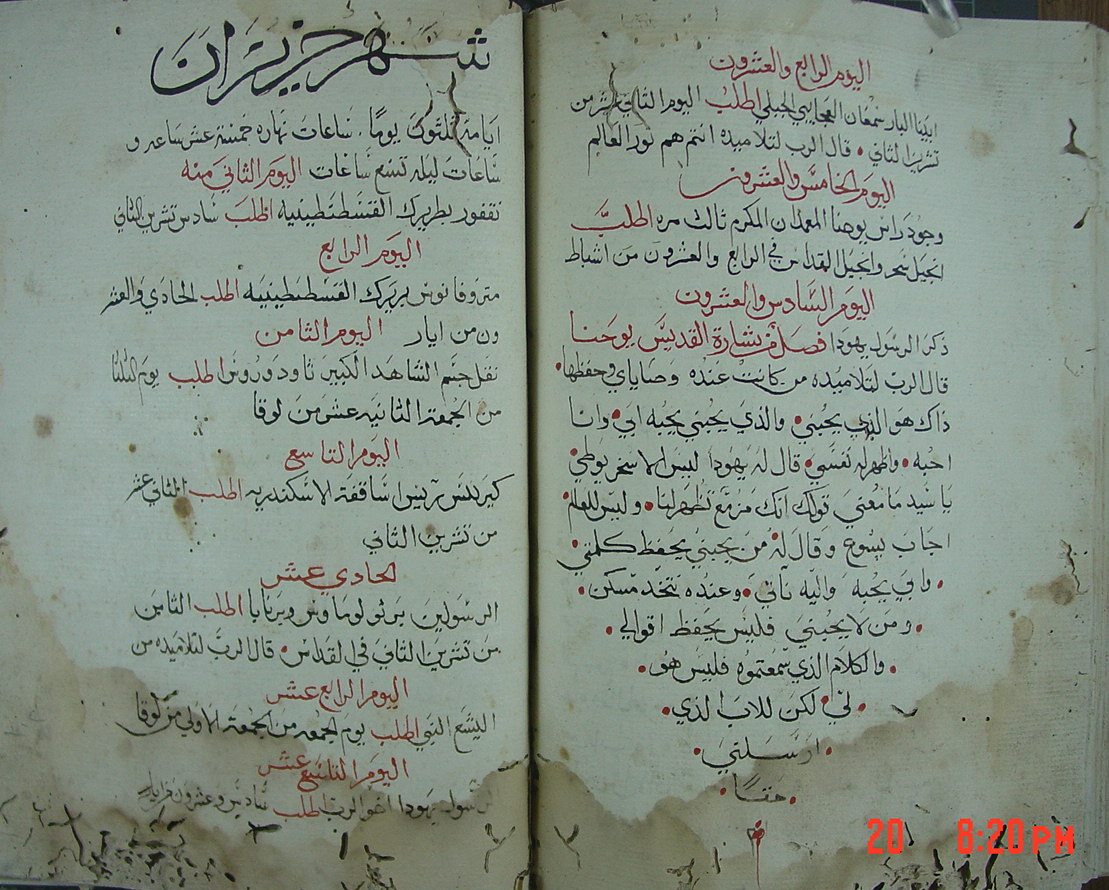 اليوم الرابع والعشرون
ابينا البار سمعان العجايبي الجبلي اطلب اليوم الثاني عشر من
تشرين الثاني • قال الرب لتلاميده انتم هم نور العالم
اليوم الخامس والعشرون
وجود راس يوحنا المعمدان المكرم ثالث مره اطلب
انجيل سحر وانجيل القداس في الرابع والعشرون من اشباط
اليوم السادس والعشرون
ذكر الرسول يهودا فصل من بشارة القديس يوحنا
قال الرب لتلاميده من كانت عنده وصاياي وحفظها •
ذاك هو الذي يحبني • والذي يحبني يحبه ابي • وانا
احبه • واظهر له نفسي • قال له يهودا ليس الاسخريوطي •
يا سيد ما معني قولك انك مزمع تظهر لنا • وليس للعالم •
اجاب يسوع وقال له • من يحبني يحفظ كلمتي •
• وابي يحبه واليه ناتي • وعنده نتخد مسكن •
• ومن لا يحبني فليس يحفظ اقوالي •
• والكلام الذي سمعتموه فليس هو •
• لي • لكن للاب الذي •
• ارسلني •
• حقا •
شهر حزيران
ايامه ثلثون يوما • ساعات نهاره خمسة عشر ساعه و
ساعات ليله تسع ساعات اليوم الثاني منه
نقفور بطريرك القسطنطينيه اطلب سادس تشرين الثاني
اليوم الرابع
متروفانوس بريرك القسطنطينيه اطلب الحادي والعشر
ون من ايار اليوم الثامن
نقل جسم الشاهد الكبير تاودوروس اطلب يوم الثلثا
من الجمعة الثانيه عشر من لوقا
اليوم التاسع
كيرللس رييس اساقفة الاسكندريه اطلب الثاني عشر
من تشرين الثاني
الحادي عشر
الرسولين برثولوماوس وبرنابا اطلب الثامن
من تشرين الثاني في القداس • قال الرب لتلاميده من
اليوم الرابع عشر
اليشع النبي اطلب يوم الجمعه من الجمعة الاولي من لوقا
اليوم التاسع عشر
الرسول يهودا اخو الرب اطلب سادس وعشرون من ايار
20 8:20 PM